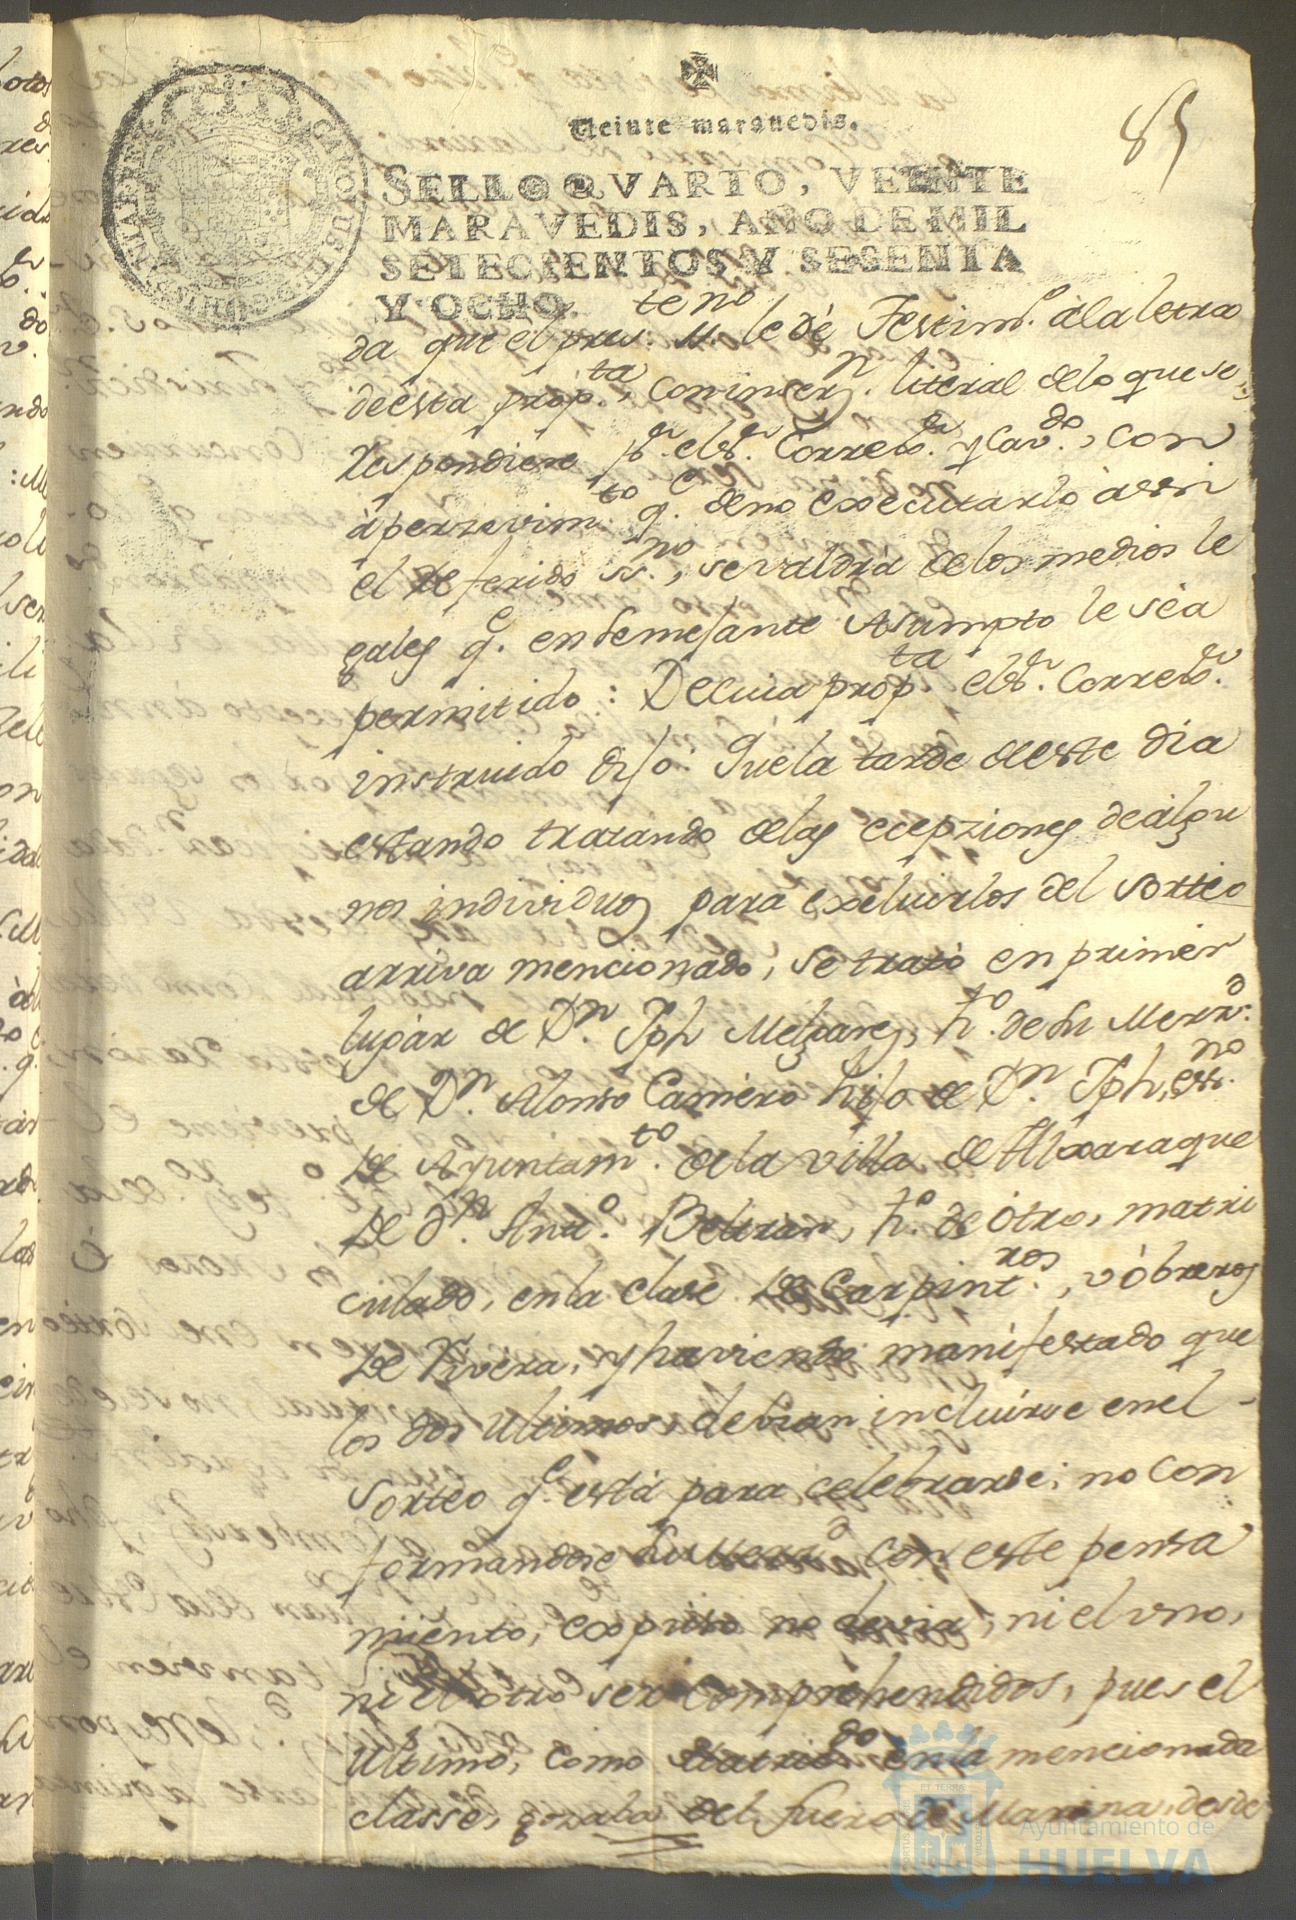 85
Veinte maravedis.
SELLO QVARTO, VEINTE
MARAVEDIS, AÑO DE MIL
SETECIENTOS Y SESENTA
Y OCHO.
da que el pres.te ss.no le dè Testim.o ala letra
deesta prop.ta, con inser.n literal delo que se
respondiere p.r el S.r Correg.or y Cav.do, con
àperzevim.to q.e deno executarlo àssi
el referido ss.no, sevaldrà delos medios le
gales q.e en semejante Asumpto le sèa
permitido: Decuia prop.ta el S.r Correg.or
instruido dijo: Quela tarde deeste dia
estando tratando delas ecepziones deàlgu
nos individuos para excluirlos del Sorteo
arriva mencionado, se tratò en primer
lugàr de D.n Jph Melgarej, h.o de su Merz.d
de D.n Alonso Camèro hijo de D.n Jph, ess.no
de Ayuntam.to dela villa de Aljaraque
de D.n Ant.o Beltran, h.o de òtro, matri
culado, en la clase de Carpint.ros, ù òbreros
de Rivera, y haviendo manifestado que
los dos ultimos, debian incluirse enel
Sorteo q.e està para celebrarse; no con
formandose su merz.d con este pensa
miento, expuso no devia, ni el vno,
ni el otro ser Comprehendidos, pues el
ultimo, como matric.do en la mencionada
classe, gozaba del fuero de Marina, desde
CAROLUS III D G
HISPANIAR REX
ET TERRÆ
Ayuntamiento de
HUELVA